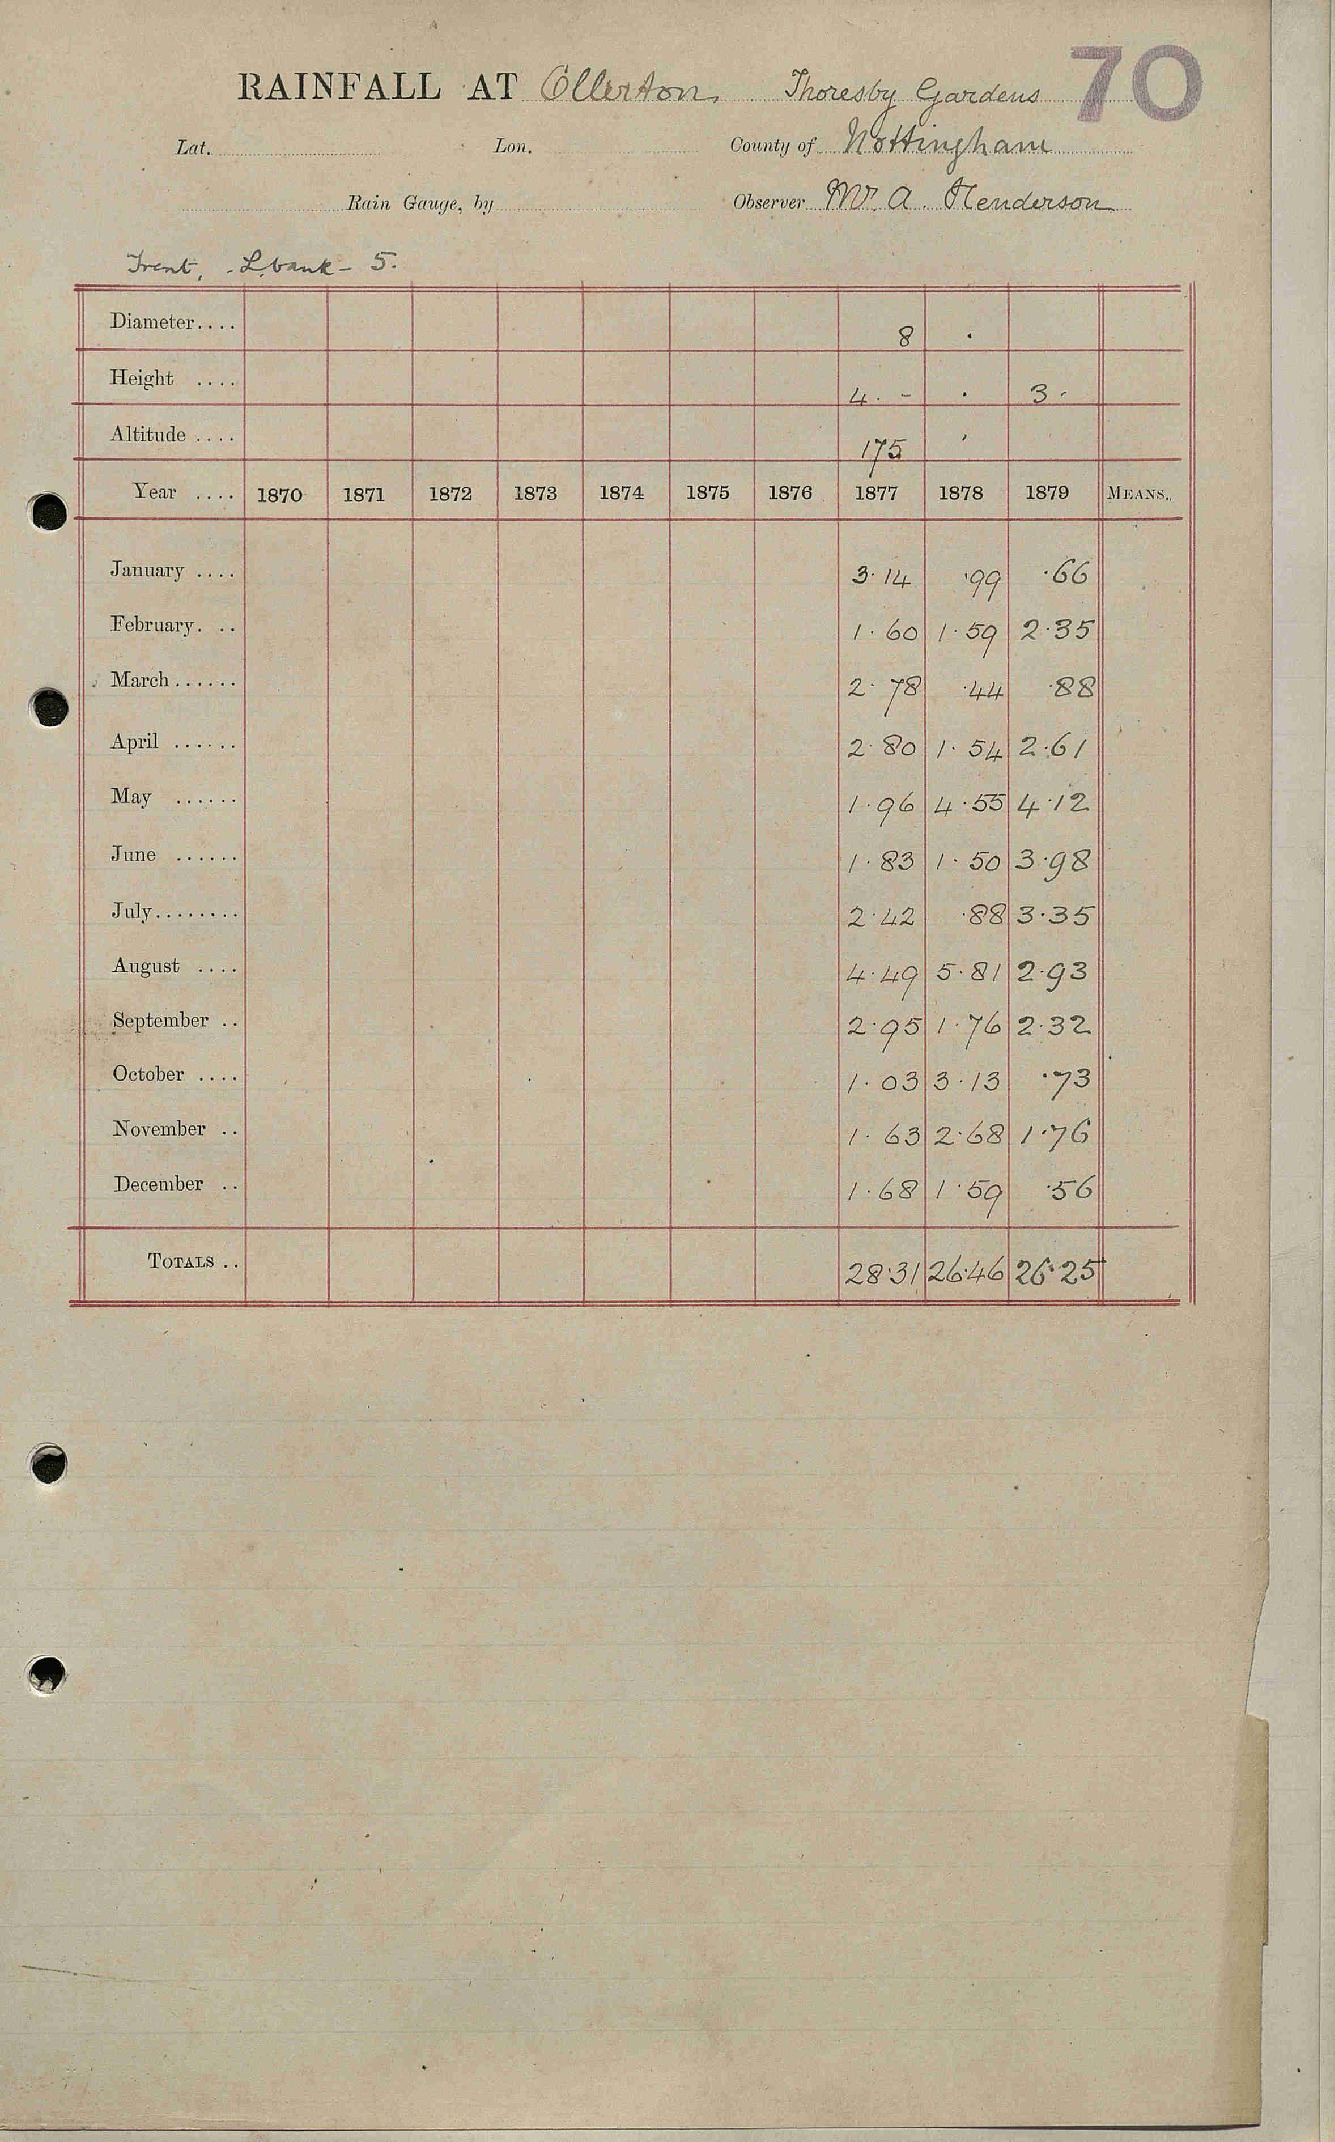 RAINFALL AT Ollerton, Thoresby Gardens 70
Lat. Lon. County of Nottingham
Rain Gauge, by Observer Mr. A. Henderson
Trent, - L. bank - 5.
Diameter.... 8 .
Height .... 4. - . 3 -
Altitude .... 175 '
Year .... 1870 1871 1872 1873 1874 1875 1876 1877 1878 1879 MEANS.
January .... 3.14 .99 .66
February. .. 1.60 1.59 2.35
March...... 2.78 .44 .88
April ...... 2.80 1.54 2.61
May ...... 1.96 4.55 4.12
June ...... 1.83 1.50 3.98
July........ 2.42 .88 3.35
August .... 4.49 5.81 2.93
September .. 2.95 1.76 2.32
October .... 1.03 3.13 .73
November .. 1.63 2.68 1.76
December .. 1.68 1.59 .56
TOTALS .. 28.31 26.46 26.25